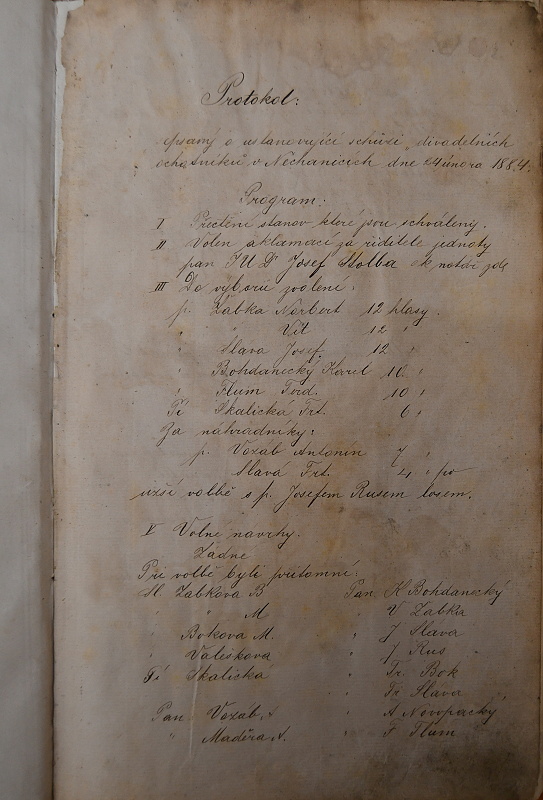 Protokol:
epsaný o ustanovující schůzi divadelních
ochotníků v Něchanicích dne 24 února 1884.
Program:
I Přečtení stanov které jsou schváleny.
II Volen aklamací za ředitele jednoty
pan JUDr Josef Štolba c.k. notář zde
III Do výboru zvoleni:
p. Žabka Norbert 12 hlasy.
" " Vít 12 "
" Sláva Josef 12 "
" Bohdanecký Karel 10 "
" Flum Ferd. 10 "
Pí Skalická Frt. 6 "
Za náhradníky:
p. Vozáb Antonín 7 "
Slává Frt. 4 " po
užší volbě s p. Josefem Rusem losem.
V Volné návrhy.
Žádné
Při volbě byli přítomni:
Sl. Žabkova B Pan K Bohdanecký
" " M " V Žabka
" Bokova M. " J Slava
" Valešková " J Rus
Pí Skalická " Fr. Bok
" Fr Sláva
Pan Vozáb A " A Novopacký
" Maděra A. " F Flum